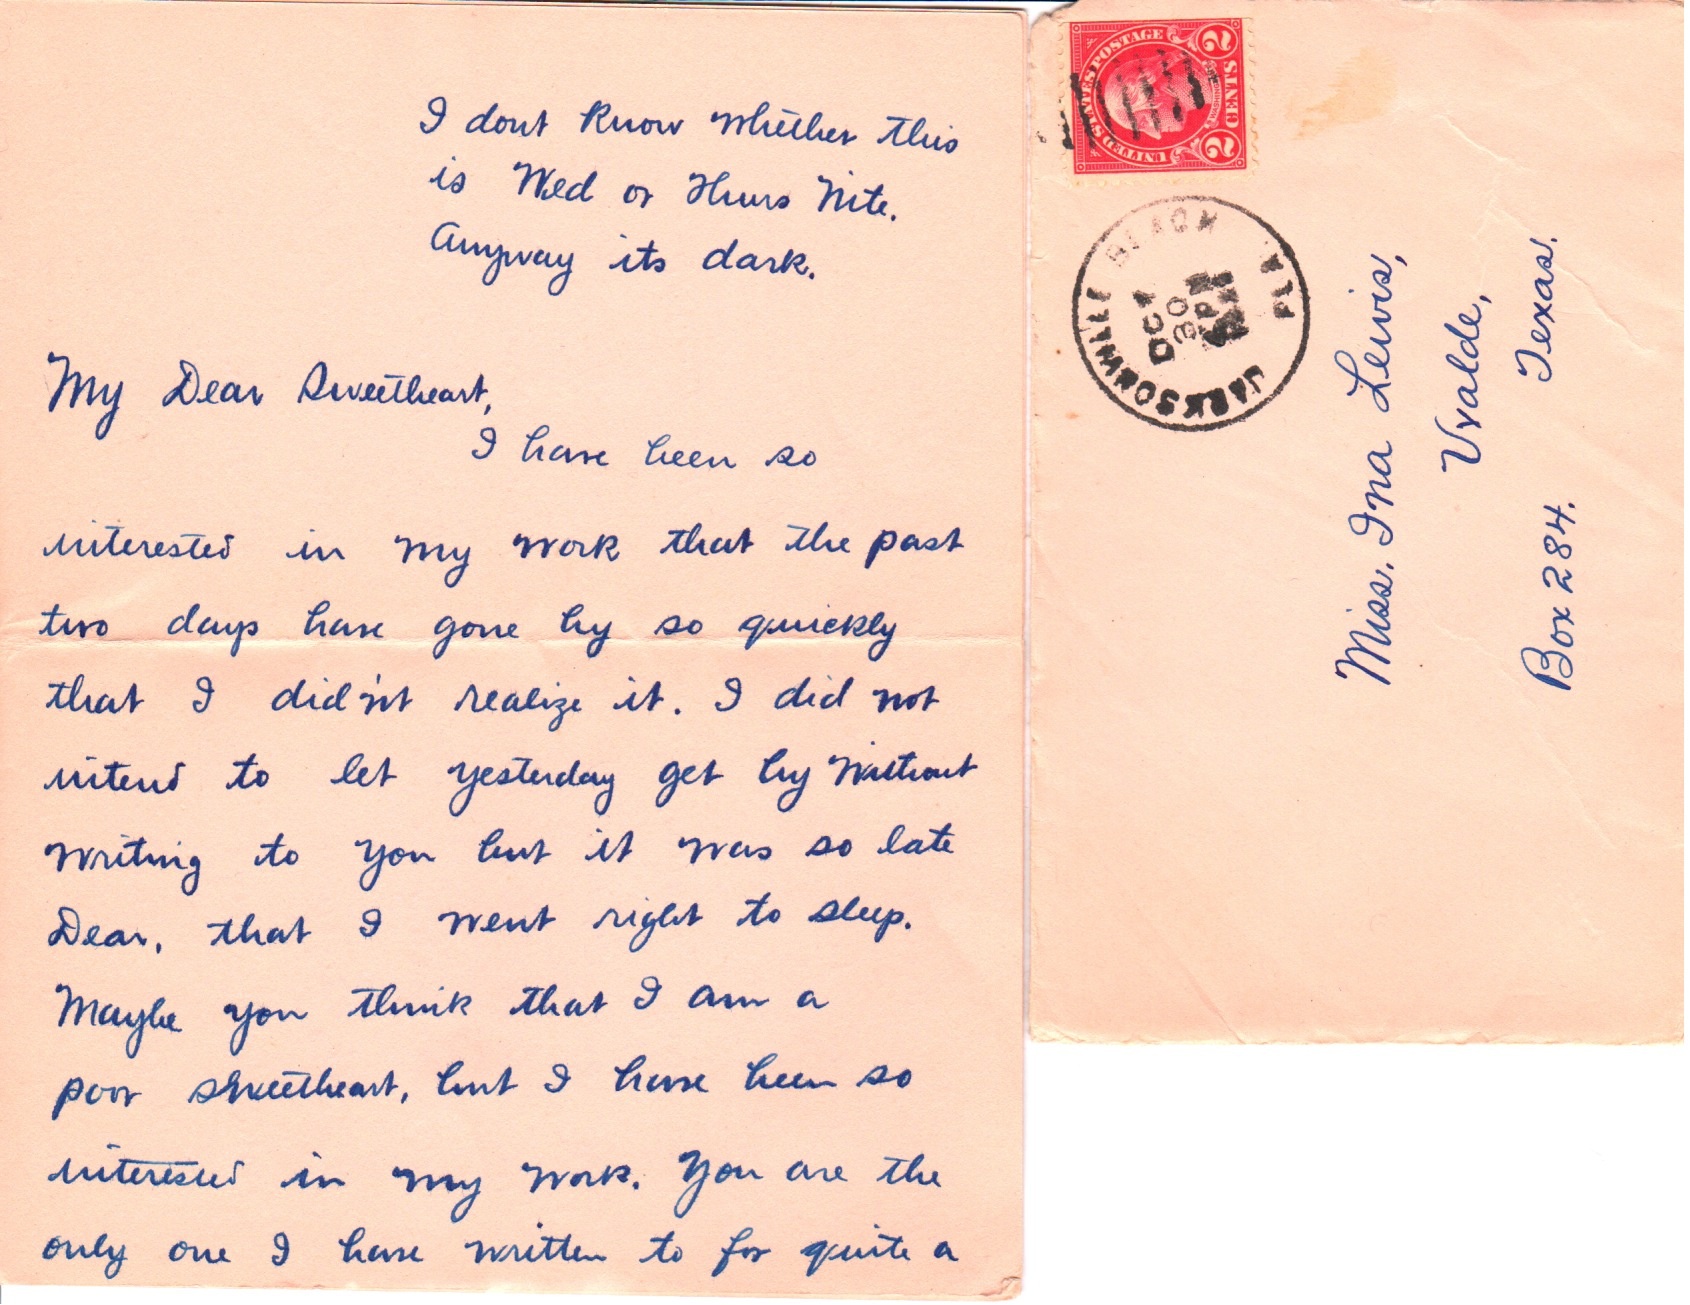 I dont know whether this
is Wed or Thurs Nite.
Anyway its dark.
My Dear Sweetheart,
I have been so
interested in my work that the past
two days have gone by so quickly
that I did'nt realize it. I did not
intend to let yesterday get by without
writing to you but it was so late
Dear, that I went right to sleep.
Maybe you think that I am a
poor sweetheart, but I have been so
interested in my work. You are the
only one I have written to for quite a
UNITED STATES POSTAGE
WASHINGTON
2 CENTS 2
JACKSONVILLE BEACH FLA.
OCT
30
PM
Miss. Ina Lewis,
Uvalde,
Box 284. Texas.